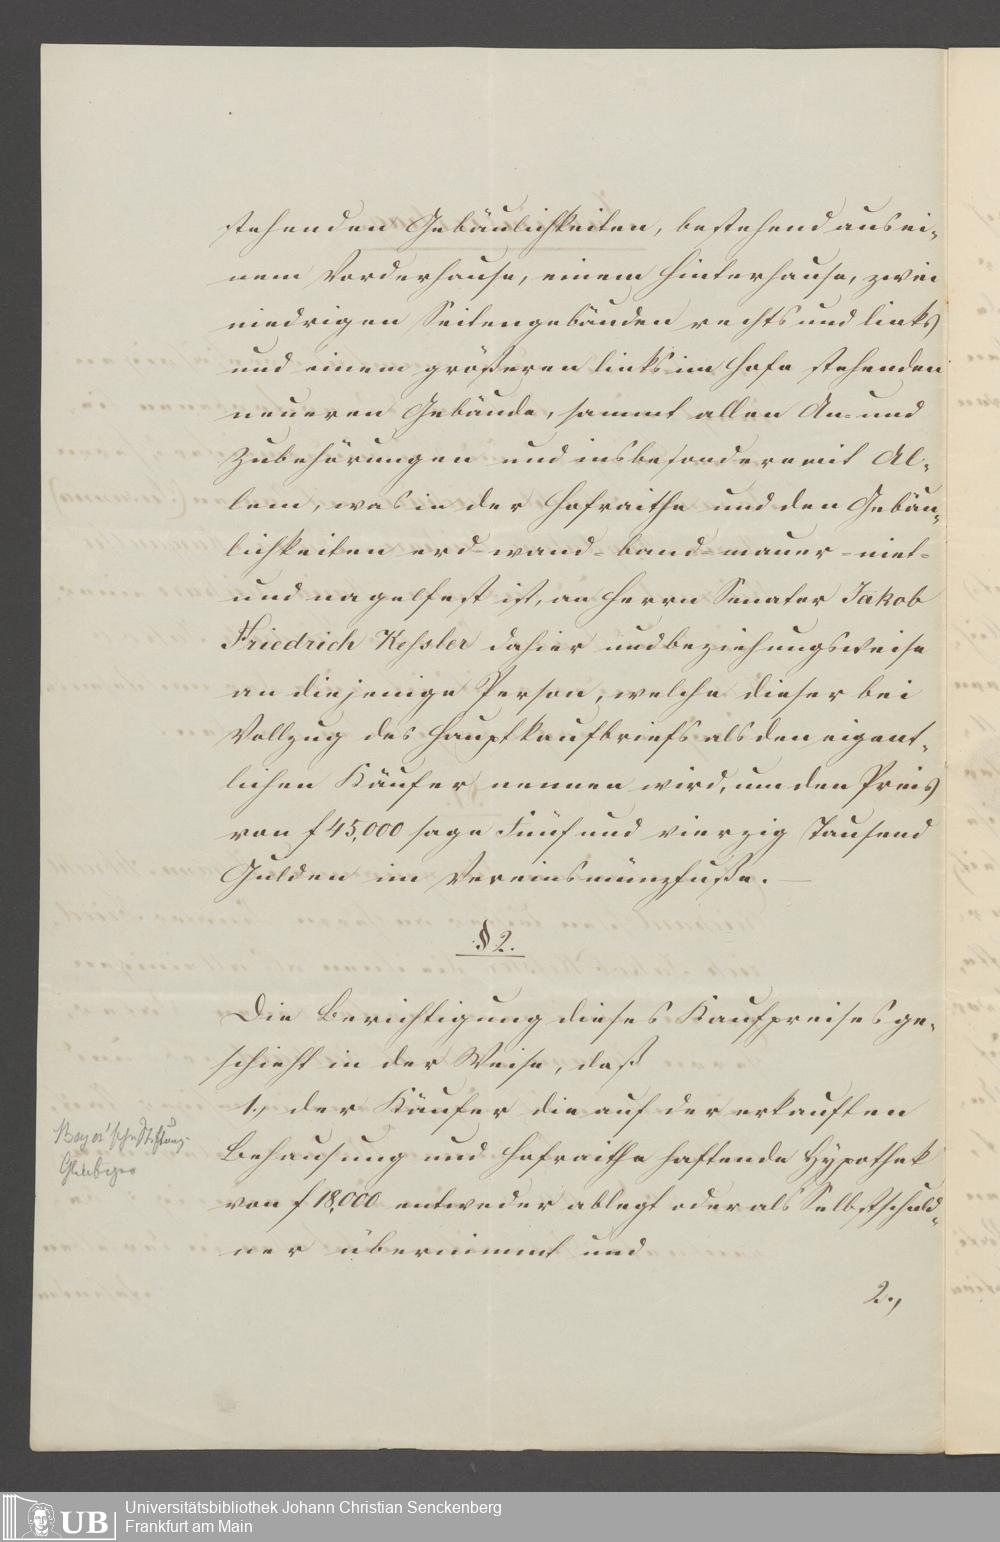 stehenden Gebäulichkeiten, bestehend aus ei-
nem Vorderhause, einem Hinterhause, zwei
niedrigen Seitengebäuden rechts und links
und einem größeren links im Hofe stehenden
neueren Gebäude, sammt allen An- und
Zubehörungen und insbesondere mit Al-
lem, was in der Hofraithe und den Gebäu-
lichkeiten erd- wand- band- mauer- niet-
und nagelfest ist, an Herrn Senator Jakob
Friedrich Keßler dahier und beziehungsweise
an diejenige Person, welche dieser bei
Vollzug des Hauptkaufbriefs als den eigent-
lichen Käufer nennen wird, um den Preis
von f 45,000 sage Fünf und vierzig Tausend
Gulden im Vereinsmünzfuße. —
§ 2.
Die Berichtigung dieses Kaufpreises ge-
schieht in der Weise, daß
1., der Käufer die auf der erkauften
Boyer'sche Stiftung
Behausung und Hofraithe haftende Hypothek
Gläubiger
von f 18,000 entweder ablegt oder als Selbstschuld-
ner übernimmt und
2.,
UB
Universitätsbibliothek Johann Christian Senckenberg
Frankfurt am Main